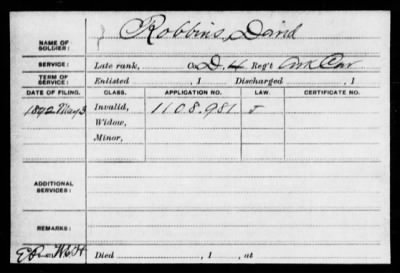 NAME OF SOLDIER: Robbins, David
SERVICE: Late rank, Co. D. 4 Reg't Ark Cav
TERM OF SERVICE: Enlisted , 1 Discharged , 1
DATE OF FILING. CLASS. APPLICATION NO. LAW. CERTIFICATE NO.
1892 May 3 Invalid, 1108.981
Widow,
Minor,
ADDITIONAL SERVICES:
REMARKS:
Died , 1 , at